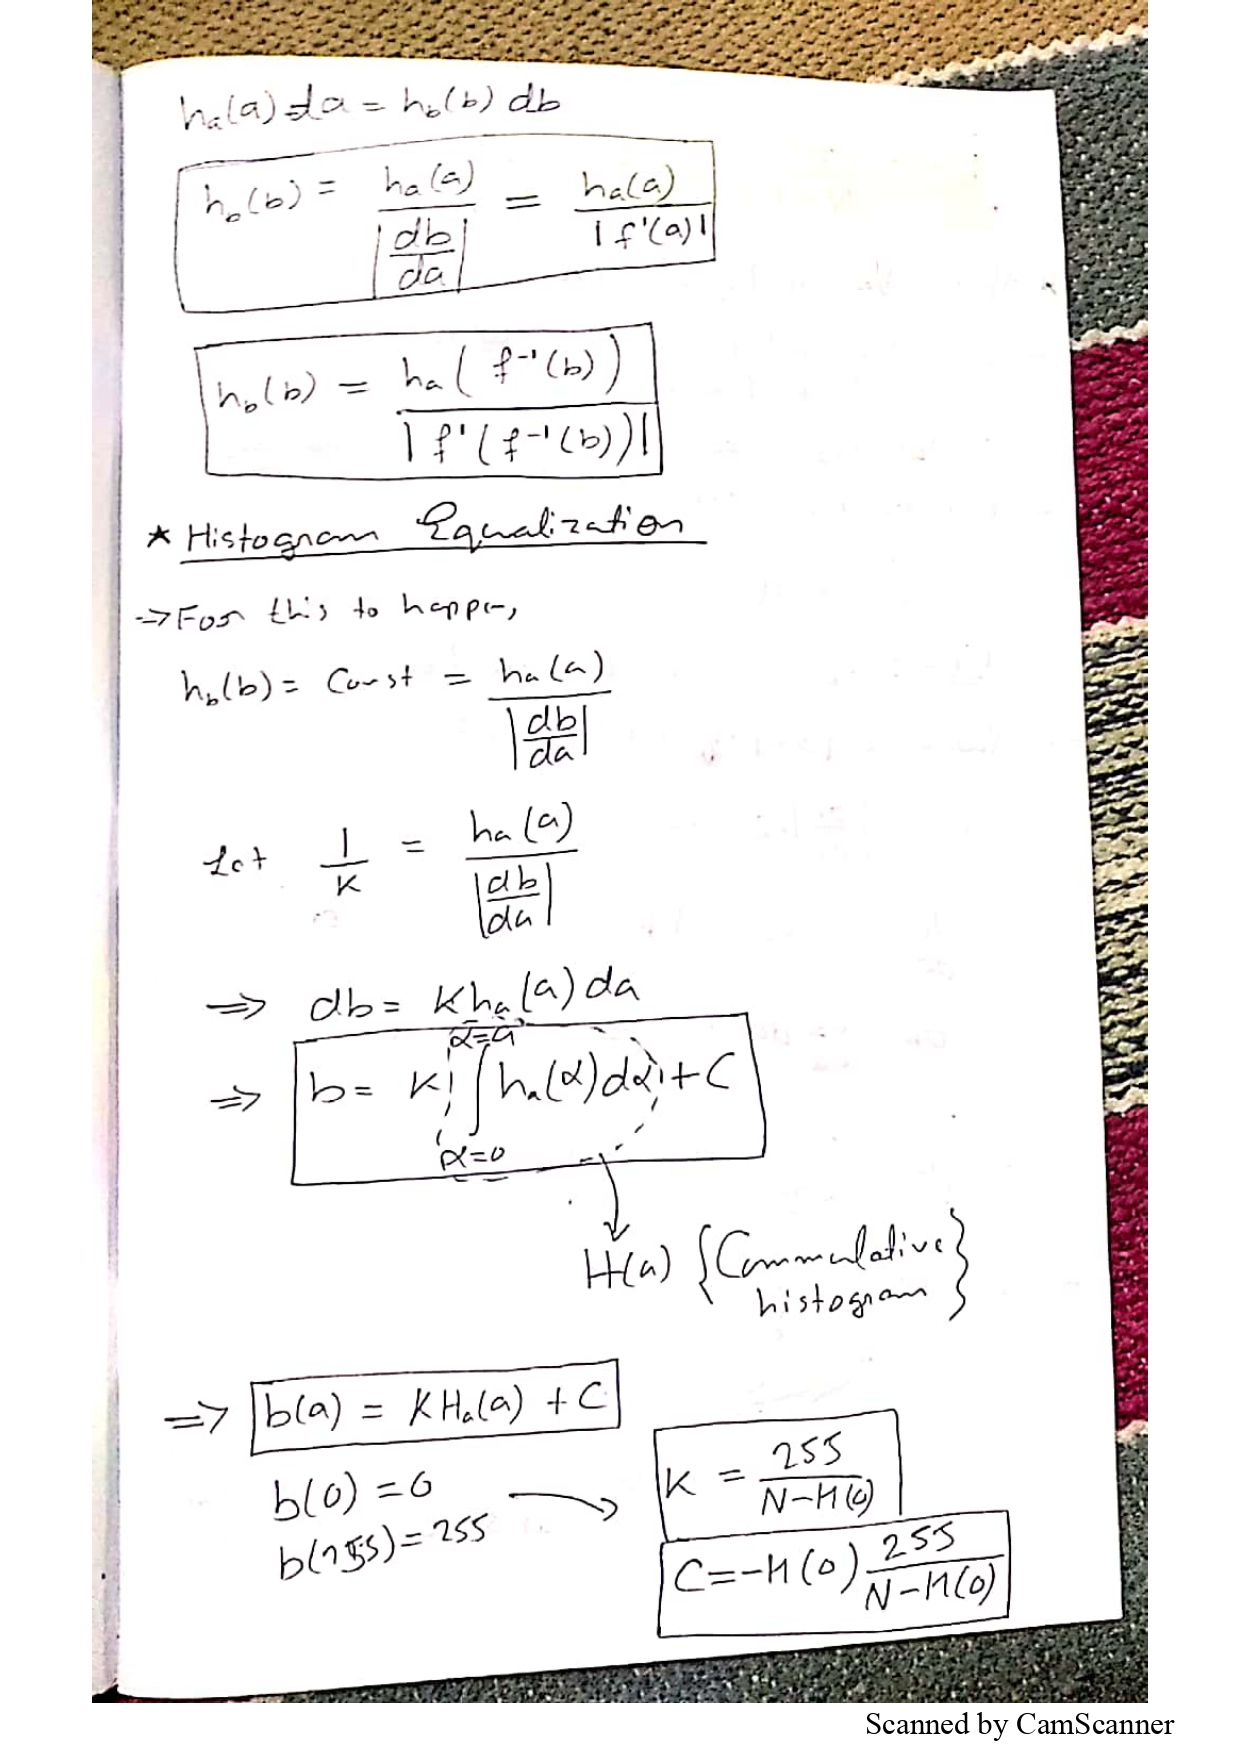 hₐ(a) da = h_b(b) db
h_b(b) = hₐ(a) / |db/da| = hₐ(a) / |f'(a)|
h_b(b) = hₐ(f⁻¹(b)) / |f'(f⁻¹(b))|
* Histogram Equalization
→ For this to happen,
h_b(b) = Const = hₐ(a) / |db/da|
Let 1/K = hₐ(a) / |db/da|
⇒ db = K hₐ(a) da
⇒ b = K ∫_{α=0}^{α=a} hₐ(α) dα + C
H(a) {Commulative
histogram}
⇒ b(a) = K Hₐ(a) + C
b(0) = 0
b(255) = 255
K = 255 / (N-H(0))
C = -H(0) 255 / (N-H(0))
Scanned by CamScanner